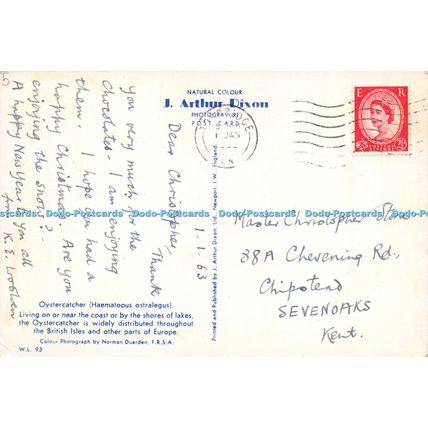 NATURAL COLOUR
J. Arthur Dixon
PHOTOGRAVURE
POST CARD
Dear Christopher,
Thank
you very much for the
chocolates - I am enjoying
them. I hope you had a
happy Christmas. Are you
enjoying the snow?
A happy New Year to you all
from
1-1-63
Oystercatcher (Haematopus ostralegus).
Living on or near the coast or by the shores of lakes,
the Oystercatcher is widely distributed throughout
the British Isles and other parts of Europe.
Colour Photograph by Norman Duerden, F.R.S.A.
W.L. 93
Printed and Published by J. Arthur Dixon Ltd., Newport, I.W., England.
1 JAN
E R
2½
Master Christopher
38A Chevening Rd.,
Chipstead
SEVENOAKS
Kent.
Dodo-Postcards Dodo-Postcards Dodo-Postcards Dodo-Postcards